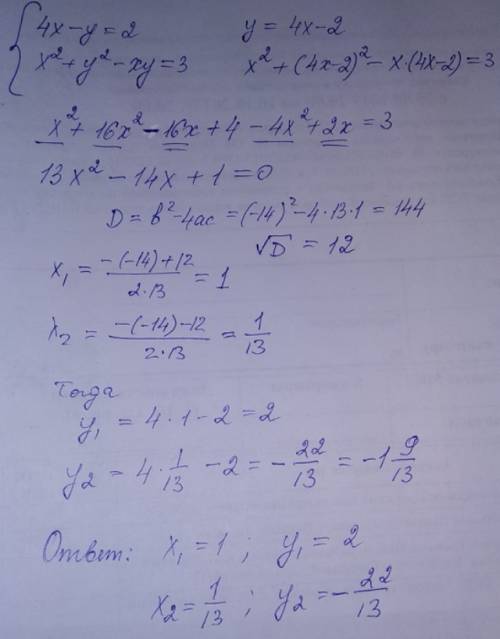 { 4x−y=2 y=4x−2
x²+y²−xy=3 x²+(4x−2)²−x·(4x−2)=3
x²+16x²−16x+4−4x²+2x=3
13x²−14x+1=0
D=b²−4ac=(−14)²−4·13·1=144
√D=12
x₁=(−(−14)+12)/(2·13)=1
x₂=(−(−14)−12)/(2·13)=1/13
Тогда
y₁=4·1−2=2
y₂=4·1/13−2=−22/13=−1 9/13
Ответ: x₁=1; y₁=2
x₂=1/13; y₂=−22/13